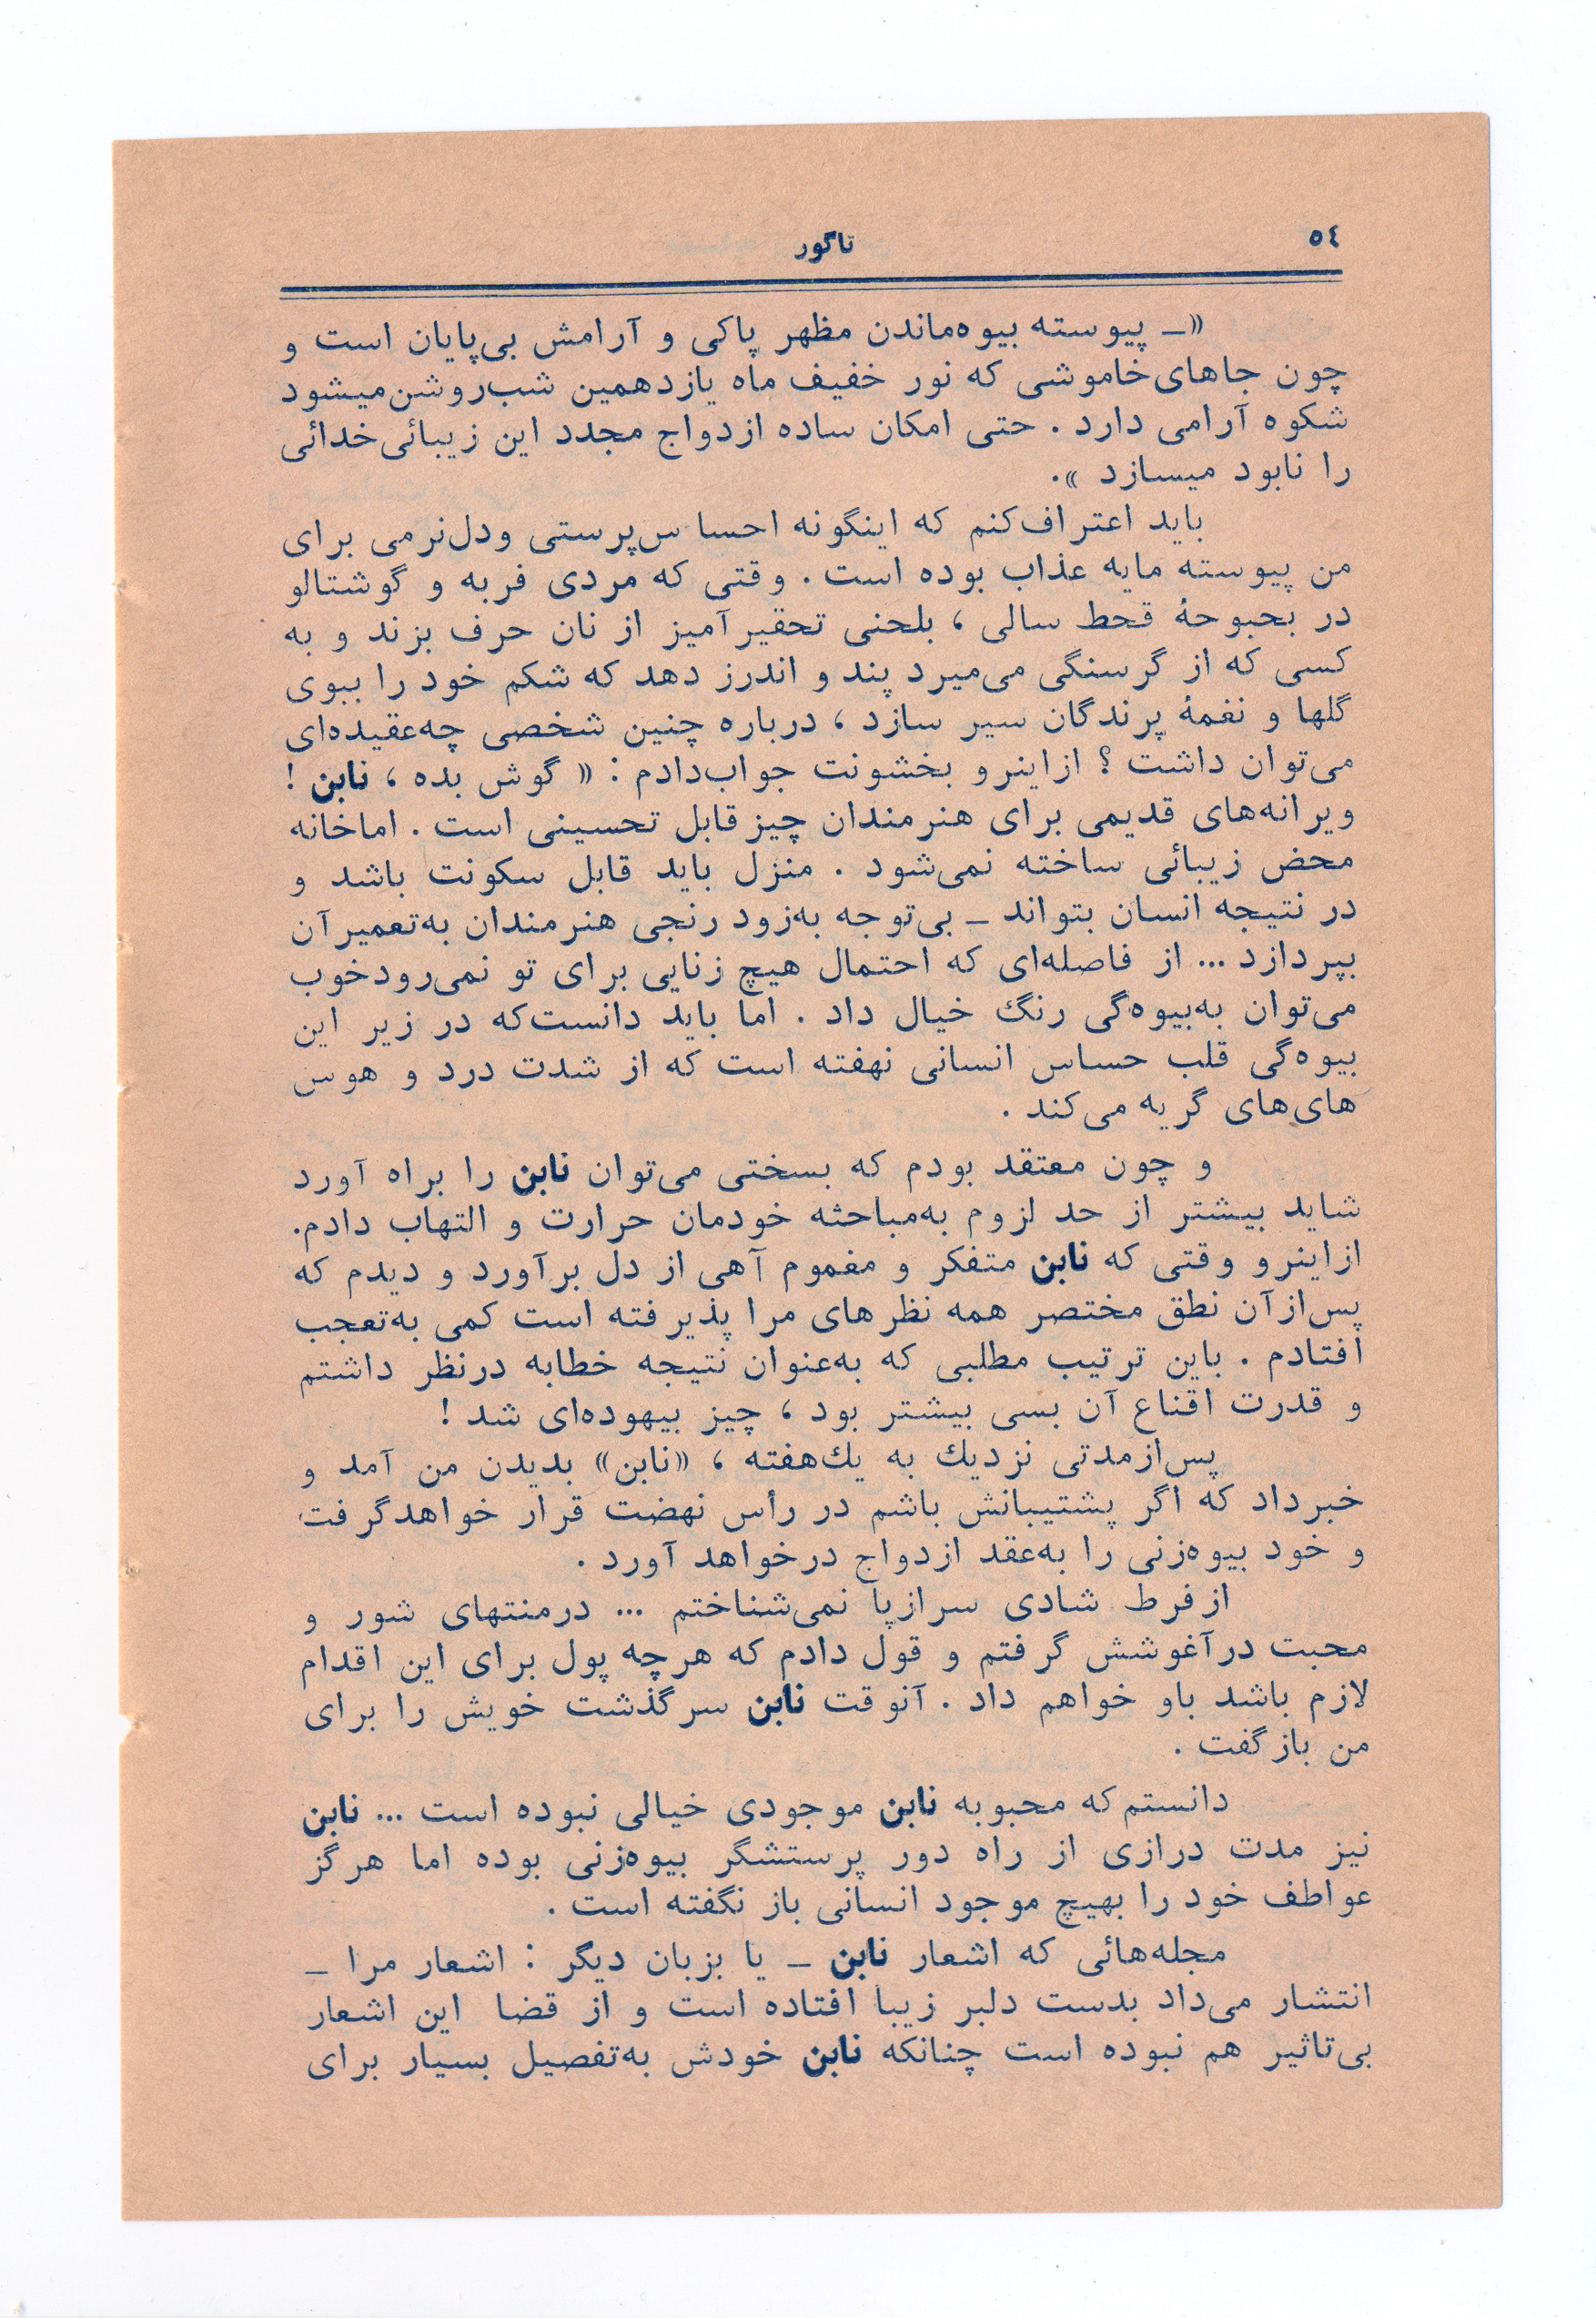 ٥٤
تاگور
«ــ پیوسته بیوه‌ماندن مظهر پاکی و آرامش بی‌پایان است و
چون جاهای‌خاموشی که نور خفیف ماه یازدهمین شب‌روشن‌میشود
شکوه آرامی دارد . حتی امکان ساده ازدواج مجدد این زیبائی‌خدائی
را نابود میسازد ».
باید اعتراف‌کنم که اینگونه احساس‌پرستی ودل‌نرمی برای
من پیوسته مایه عذاب بوده است . وقتی که مردی فربه و گوشتالو
در بحبوحهٔ قحط سالی ، بلحنی تحقیرآمیز از نان حرف بزند و به
کسی که از گرسنگی می‌میرد پند و اندرز دهد که شکم خود را ببوی
گلها و نغمهٔ پرندگان سیر سازد ، درباره چنین شخصی چه‌عقیده‌ای
می‌توان داشت ؟ ازاینرو بخشونت جواب‌دادم : « گوش بده ، نابن !
ویرانه‌های قدیمی برای هنرمندان چیز قابل تحسینی است . اماخانه
محض زیبائی ساخته نمی‌شود . منزل باید قابل سکونت باشد و
در نتیجه انسان بتواند ــ بی‌توجه به‌زود رنجی هنرمندان به‌تعمیرآن
بپردازد ... از فاصله‌ای که احتمال هیچ زنایی برای تو نمی‌رودخوب
می‌توان به‌بیوه‌گی رنگ خیال داد . اما باید دانست‌که در زیر این
بیوه‌گی قلب حساس انسانی نهفته است که از شدت درد و هوس
های‌های گریه می‌کند .
و چون معتقد بودم که بسختی می‌توان نابن را براه آورد
شاید بیشتر از حد لزوم به‌مباحثه خودمان حرارت و التهاب دادم.
ازاینرو وقتی که نابن متفکر و مغموم آهی از دل برآورد و دیدم که
پس‌ازآن نطق مختصر همه نظرهای مرا پذیرفته است کمی به‌تعجب
افتادم . باین ترتیب مطلبی که به‌عنوان نتیجه خطابه درنظر داشتم
و قدرت اقناع آن بسی بیشتر بود ، چیز بیهوده‌ای شد !
پس‌ازمدتی نزدیك به یك‌هفته ، «نابن» بدیدن من آمد و
خبرداد که اگر پشتیبانش باشم در رأس نهضت قرار خواهدگرفت
و خود بیوه‌زنی را به‌عقد ازدواج درخواهد آورد .
ازفرط شادی سرازپا نمی‌شناختم ... درمنتهای شور و
محبت درآغوشش گرفتم و قول دادم که هرچه پول برای این اقدام
لازم باشد باو خواهم داد . آنوقت نابن سرگذشت خویش را برای
من بازگفت .
دانستم‌که محبوبه نابن موجودی خیالی نبوده است ... نابن
نیز مدت درازی از راه دور پرستشگر بیوه‌زنی بوده اما هرگز
عواطف خود را بهیچ موجود انسانی باز نگفته است .
مجله‌هائی که اشعار نابن ــ یا بزبان دیگر : اشعار مرا ــ
انتشار می‌داد بدست دلبر زیبا افتاده است و از قضا این اشعار
بی‌تاثیر هم نبوده است چنانکه نابن خودش به‌تفصیل بسیار برای